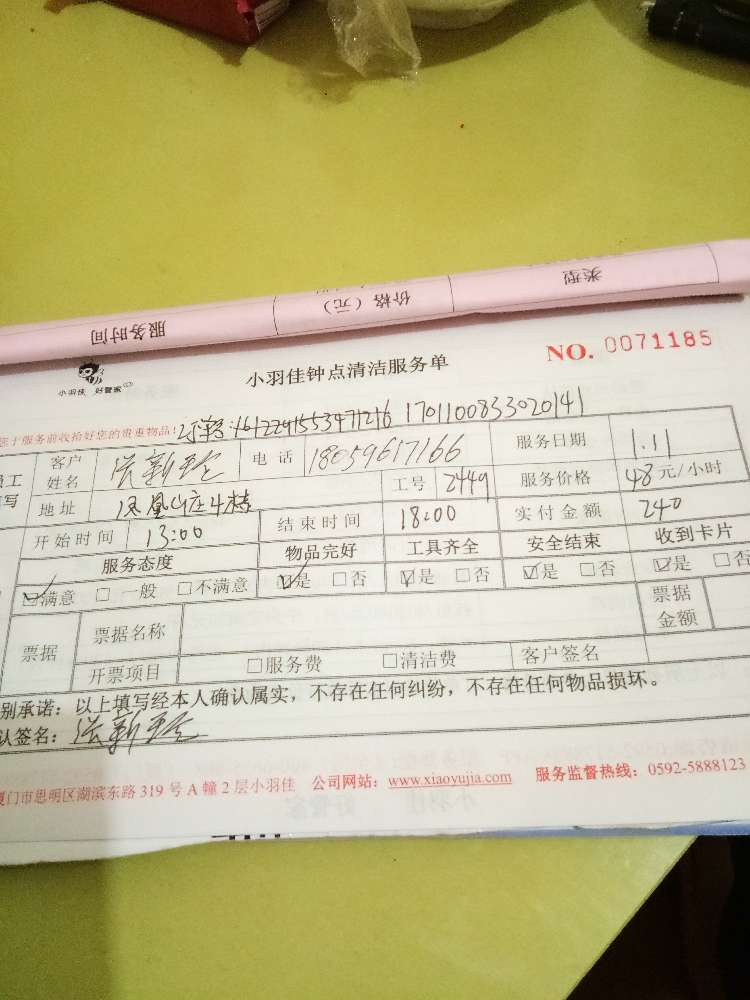 服务时间 价格（元） 类型
小羽佳 好管家
小羽佳钟点清洁服务单
NO. 0071185
您于服务前收拾好您的贵重物品！订单号:1612291553471216 1701100833020141
客户姓名 洪新 电话 18059617166 服务日期 1.11
地址 凤凰山庄4楼 工号 2449 服务价格 48元/小时
开始时间 13:00 结束时间 18:00 实付金额 240
服务态度 物品完好 工具齐全 安全结束 收到卡片
☑满意 □一般 □不满意 ☑是 □否 ☑是 □否 ☑是 □否 ☑是 □否
票据 票据名称 票据金额
开票项目 □服务费 □清洁费 客户签名
别承诺：以上填写经本人确认属实，不存在任何纠纷，不存在任何物品损坏。
认签名：洪新
厦门市思明区湖滨东路319号A幢2层小羽佳 公司网站：www.xiaoyujia.com 服务监督热线：0592-5888123